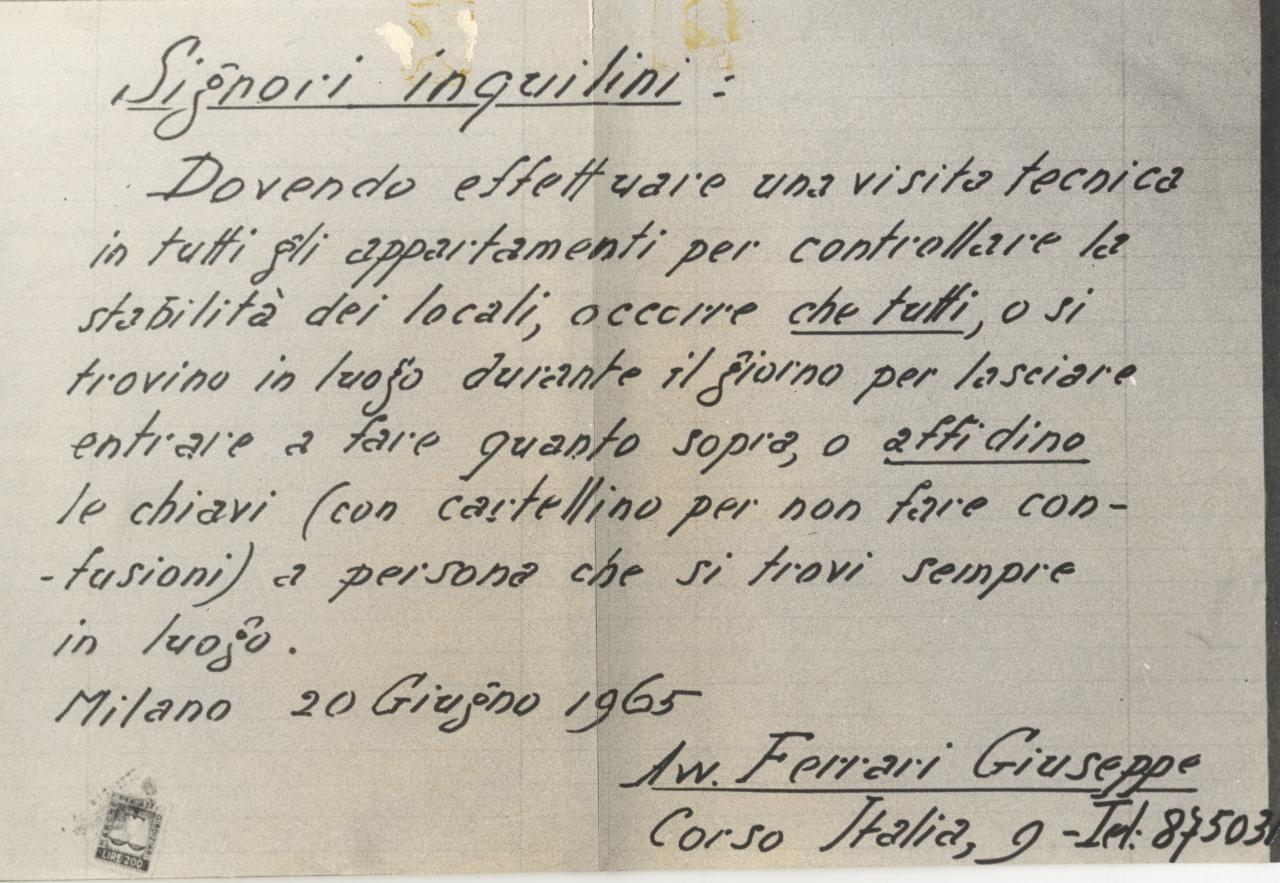 Signori inquilini :
Dovendo effettuare una visita tecnica
in tutti gli appartamenti per controllare la
stabilità dei locali, occorre che tutti, o si
trovino in luogo durante il giorno per lasciare
entrare a fare quanto sopra, o affidino
le chiavi (con cartellino per non fare con-
-fusioni) a persona che si trovi sempre
in luogo.
Milano 20 Giugno 1965
Avv. Ferrari Giuseppe
Corso Italia, 9 - Tel: 875031
LIRE 200